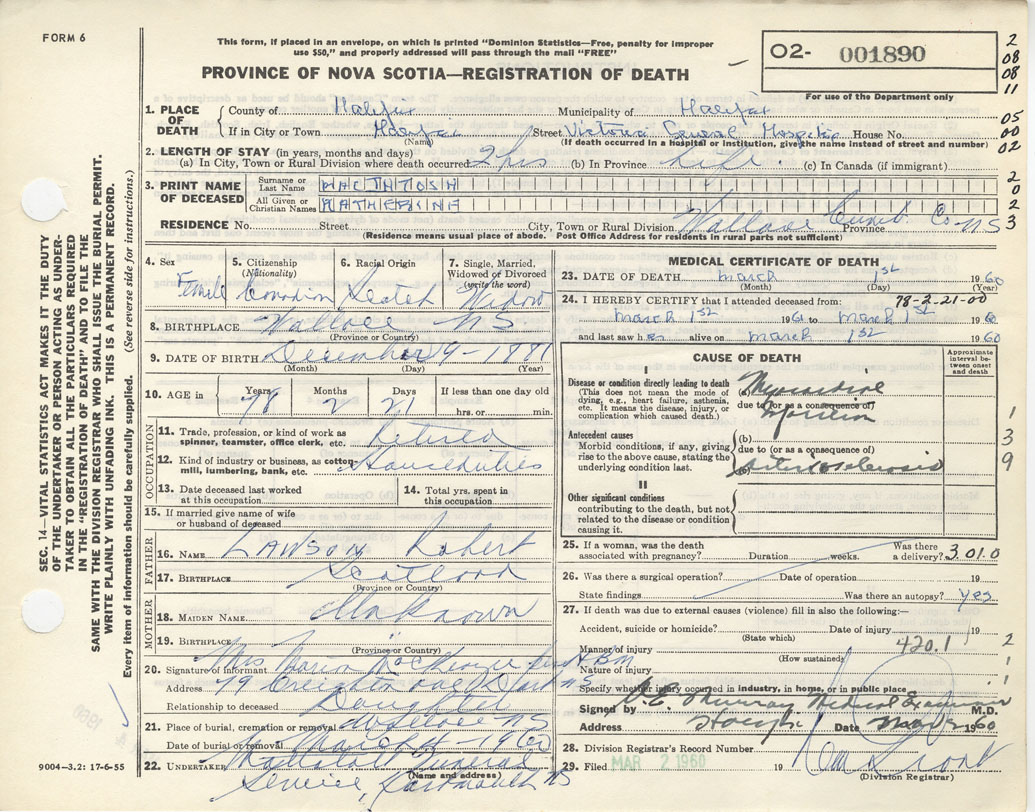 FORM 6
This form, if placed in an envelope, on which is printed "Dominion Statistics—Free, penalty for improper
use $50," and properly addressed will pass through the mail "FREE"
PROVINCE OF NOVA SCOTIA—REGISTRATION OF DEATH
O2- 001890
For use of the Department only
2
08
08
11
05
00
02
2
0
2
3
SEC. 14—VITAL STATISTICS ACT MAKES IT THE DUTY
OF THE UNDERTAKER OR PERSON ACTING AS UNDER-
TAKER TO OBTAIN ALL THE PARTICULARS REQUIRED
IN THE "REGISTRATION OF DEATH" AND TO FILE THE
SAME WITH THE DIVISION REGISTRAR WHO SHALL ISSUE THE BURIAL PERMIT.
WRITE PLAINLY WITH UNFADING INK. THIS IS A PERMANENT RECORD.
Every item of information should be carefully supplied. (See reverse side for instructions.)
1. PLACE OF DEATH
County of Halifax Municipality of Halifax
If in City or Town Halifax Street Victoria General Hospital House No.
(Name) (If death occurred in a hospital or institution, give the name instead of street and number)
2. LENGTH OF STAY (in years, months and days)
(a) In City, Town or Rural Division where death occurred 2 hrs (b) In Province Life (c) In Canada (if immigrant)
3. PRINT NAME OF DECEASED
Surname or Last Name MACINTOSH
All Given or Christian Names KATHERINE
RESIDENCE No. Street City, Town or Rural Division Wallace Cumb. Co Province N S
(Residence means usual place of abode. Post Office Address for residents in rural parts not sufficient)
4. Sex Female
5. Citizenship (Nationality) Canadian
6. Racial Origin Scotch
7. Single, Married, Widowed or Divorced (write the word) Widow
8. BIRTHPLACE Wallace N S
(Province or Country)
9. DATE OF BIRTH December 9 - 1881
(Month) (Day) (Year)
10. AGE in Years 78 Months 2 Days 21 If less than one day old hrs. or min.
OCCUPATION
11. Trade, profession, or kind of work as spinner, teamster, office clerk, etc. Retired
12. Kind of industry or business, as cotton-mill, lumbering, bank, etc. House duties
13. Date deceased last worked at this occupation
14. Total yrs. spent in this occupation
15. If married give name of wife or husband of deceased
FATHER
16. NAME LAWSON Robert
17. BIRTHPLACE Scotland
(Province or Country)
MOTHER
18. MAIDEN NAME Unknown
19. BIRTHPLACE "
(Province or Country)
20. Signature of informant Mrs MacKenzie
Address 79 Creighton Ave Dart N S
Relationship to deceased Daughter
21. Place of burial, cremation or removal Wallace N S
Date of burial or removal March 4 - 1960
22. UNDERTAKER Funeral
(Name and address)
Service, Dartmouth N S
MEDICAL CERTIFICATE OF DEATH
23. DATE OF DEATH March 1st 1960
(Month) (Day) (Year)
24. I HEREBY CERTIFY that I attended deceased from: 78-2-21-00
March 1st 1960 to March 1st 1960
and last saw her alive on March 1st 1960
CAUSE OF DEATH
Approximate interval between onset and death
I
Disease or condition directly leading to death
(This does not mean the mode of dying, e.g., heart failure, asthenia, etc. It means the disease, injury, or complication which caused death.)
(a) Myocardial
due to (or as a consequence of)
Antecedent causes
Morbid conditions, if any, giving rise to the above cause, stating the underlying condition last.
(b)
due to (or as a consequence of)
(c) Arteriosclerosis
II
Other significant conditions
contributing to the death, but not related to the disease or condition causing it.
1
3
9
25. If a woman, was the death associated with pregnancy? Duration weeks. Was there a delivery? 3 01.0
26. Was there a surgical operation? Date of operation 19
State findings Was there an autopsy? yes
27. If death was due to external causes (violence) fill in also the following:—
Accident, suicide or homicide? Date of injury 19
(State which)
Manner of injury 420.1 2
(How sustained)
Nature of injury
Specify whether injury occurred in industry, in home, or in public place
Signed by Murray Medical Examiner M.D.
Address Date Mar 2 1960
28. Division Registrar's Record Number
29. Filed MAR 2 1960 19
(Division Registrar)
9004—3.2: 17-6-55